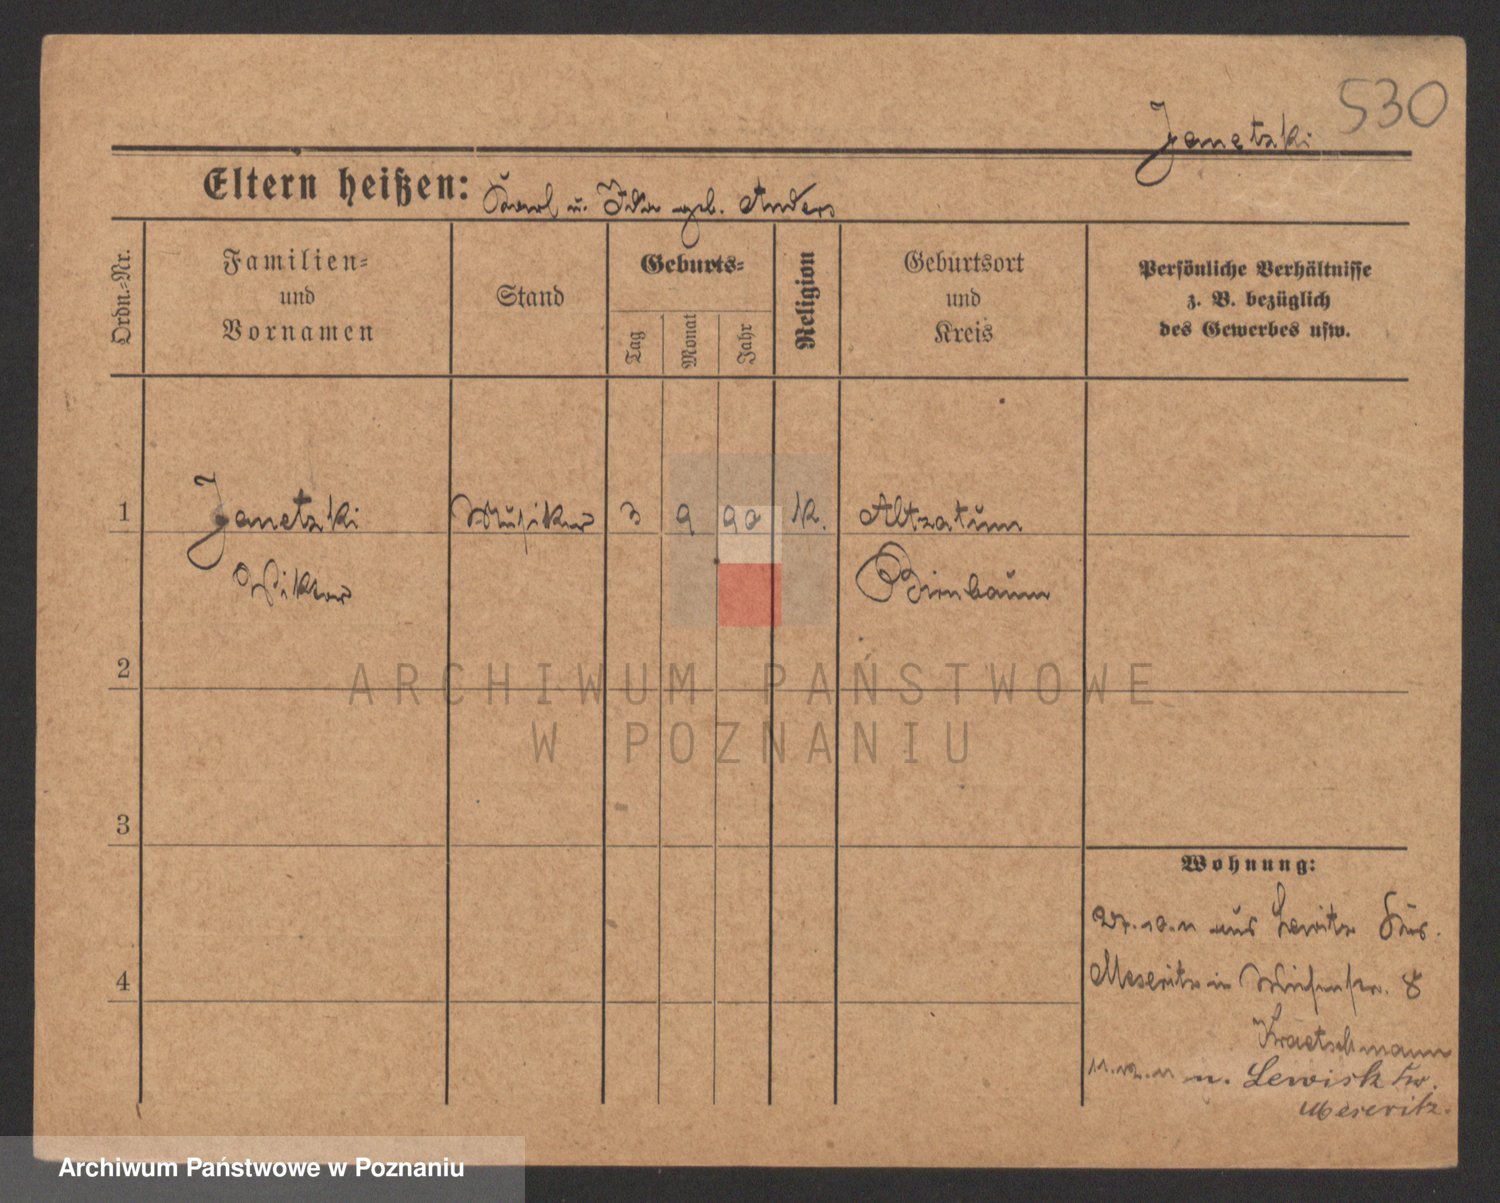 530
Janetzki
Eltern heißen: Karl u. Ida geb. Anders
Ordn.-Nr.
Familien-
und
Vornamen
Stand
Geburts-
Tag
Monat
Jahr
Religion
Geburtsort
und
Kreis
Persönliche Verhältnisse
z. B. bezüglich
des Gewerbes usw.
1 Janetzki Musiker 3 9 90 k. Altzatum
Viktor Birnbaum
2
ARCHIWUM PAŃSTWOWE
W POZNANIU
3
Wohnung:
10.11 aus Lewitz Krs.
4
Meseritz in 8
Kraetschmann
11.12.11 n. Lewitz Kr.
Meseritz.
Archiwum Państwowe w Poznaniu